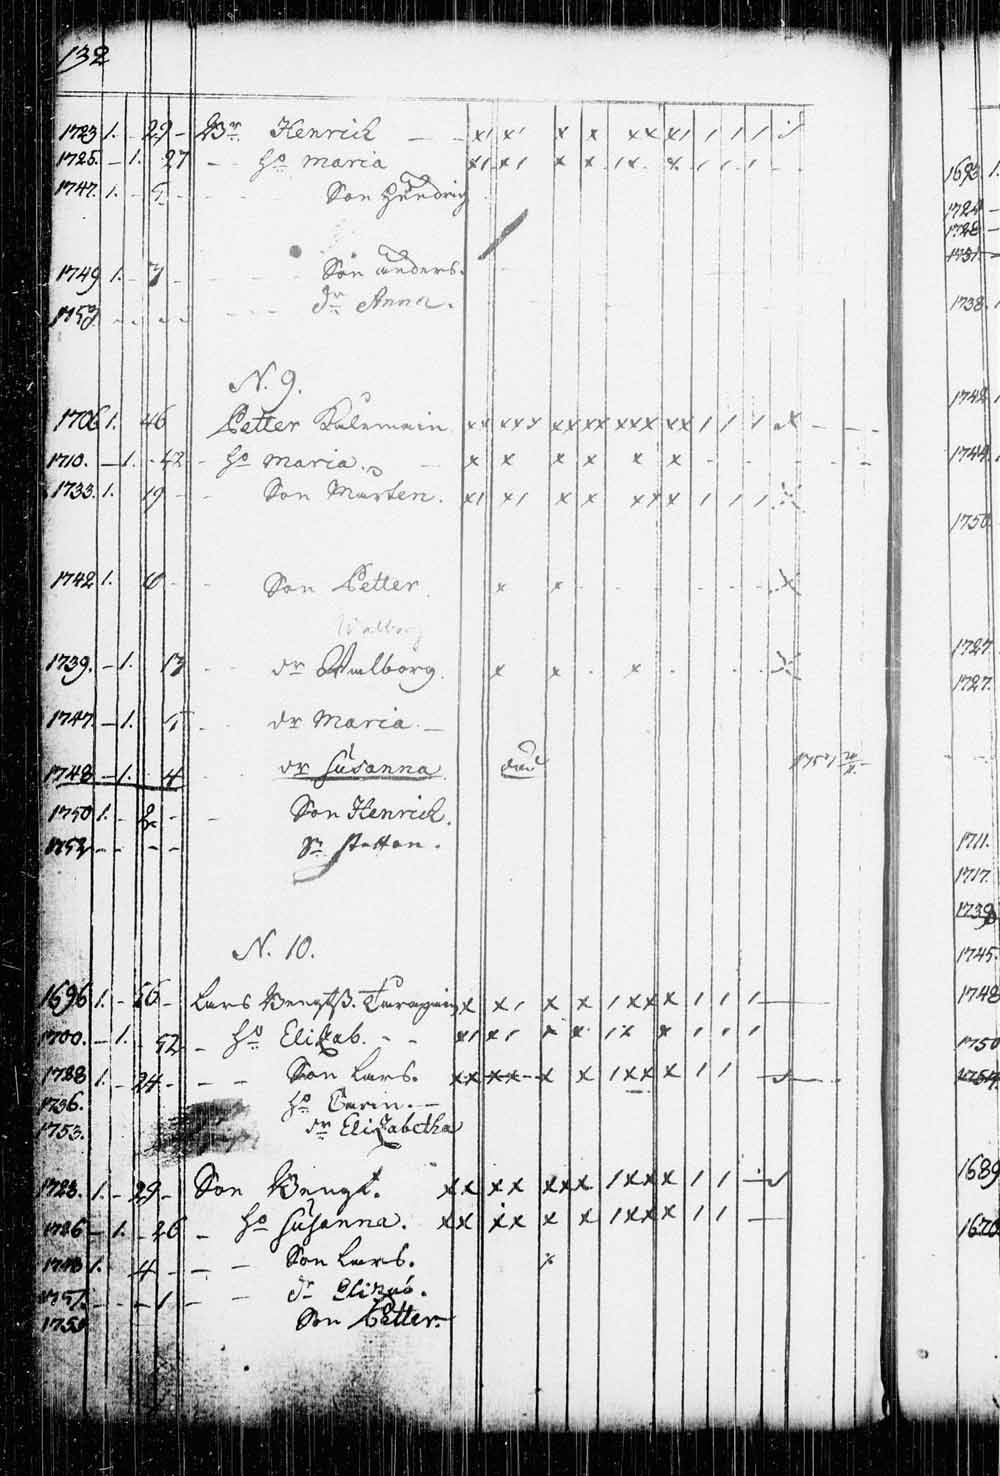 132
1723 1. - 29 - Br Henrich - - x1 x1 x x xx x1 1 1 1
1725. - 1. 27 - - ho Maria x1 x1 x x 1x x 1 1 1
1747. 1. - 5 - - Son Hendrich
1749 1. - 3 - - Son Anders.
dr Anna.
N. 9.
1706 1. 46 Petter xx xxx xx xx xxx xx 1 1 1 x
1710. - 1. 42 - ho Maria. x x x x x x
1733. 1. 19 - - Son Mårten. x1 x1 x x xxx x 1 1 1 x
1742 1. 10 - - Son Petter. x x x
Walborg
1739. - 1. 13 - - dr Walborg. x x x x
1747. - 1. 5 - - dr Maria. -
1748 - 1. 4 - - dr Susanna död
1750 1. - 2 - - Son Henrich.
1752 - - - - Sn Staffan.
N. 10.
1696 1. - 56 - Lars Bengtß. x x1 x x 1xxx x 1 1 1
1700. - 1. - 52 - ho Elisab. - - x1 x1 x x 1x x 1 1 1
1728 1. - 24 - - - Son Lars. xx xx - x x 1xxx x 1 1
1736. ho Carin. -
1753. dr Elizabetha
1723. 1. - 29 - Son Bengt. xx xx xxx 1xxx x 1 1
1726 - 1. - 26 - ho Susanna. xx xx x x 1xxx x 1 1
1748 1. - 4 - - - Son Lars. x
1751. - - - 1 - - dr Elizab.
Son Petter.
1693 1.
1724 -
1728 -
1731
1738.
1742.
1744.
1750.
1727.
1727.
1711.
1717.
1739
1745.
1748
1750
1689
1670